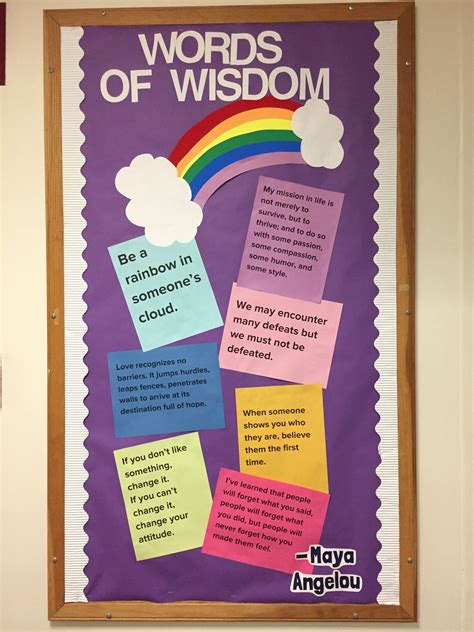 WORDS
OF WISDOM
My mission in life is
not merely to
survive, but to
thrive; and to do so
with some passion,
some compassion,
some humor, and
some style.
Be a
rainbow in
someone's
cloud.
We may encounter
many defeats but
we must not be
defeated.
Love recognizes no
barriers. It jumps hurdles,
leaps fences, penetrates
walls to arrive at its
destination full of hope.
When someone
shows you who
they are, believe
them the first
time.
If you don't like
something,
change it.
If you can't
change it,
change your
attitude.
I've learned that people
will forget what you said,
people will forget what
you did, but people will
never forget how you
made them feel.
—Maya
Angelou